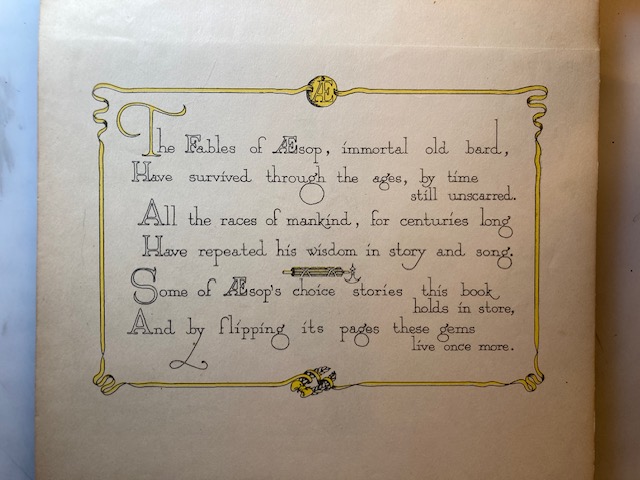 Æ
The Fables of Æsop, immortal old bard,
Have survived through the ages, by time
still unscarred.
All the races of mankind, for centuries long
Have repeated his wisdom in story and song.
Some of Æsop's choice stories this book
holds in store,
And by flipping its pages these gems
live once more.